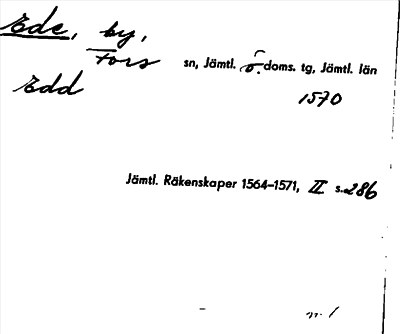 Ede, by,
Fors sn, Jämtl. ö. doms. tg, Jämtl. län
Edd
1570
Jämtl. Räkenskaper 1564–1571, II s. 286
nr. 1